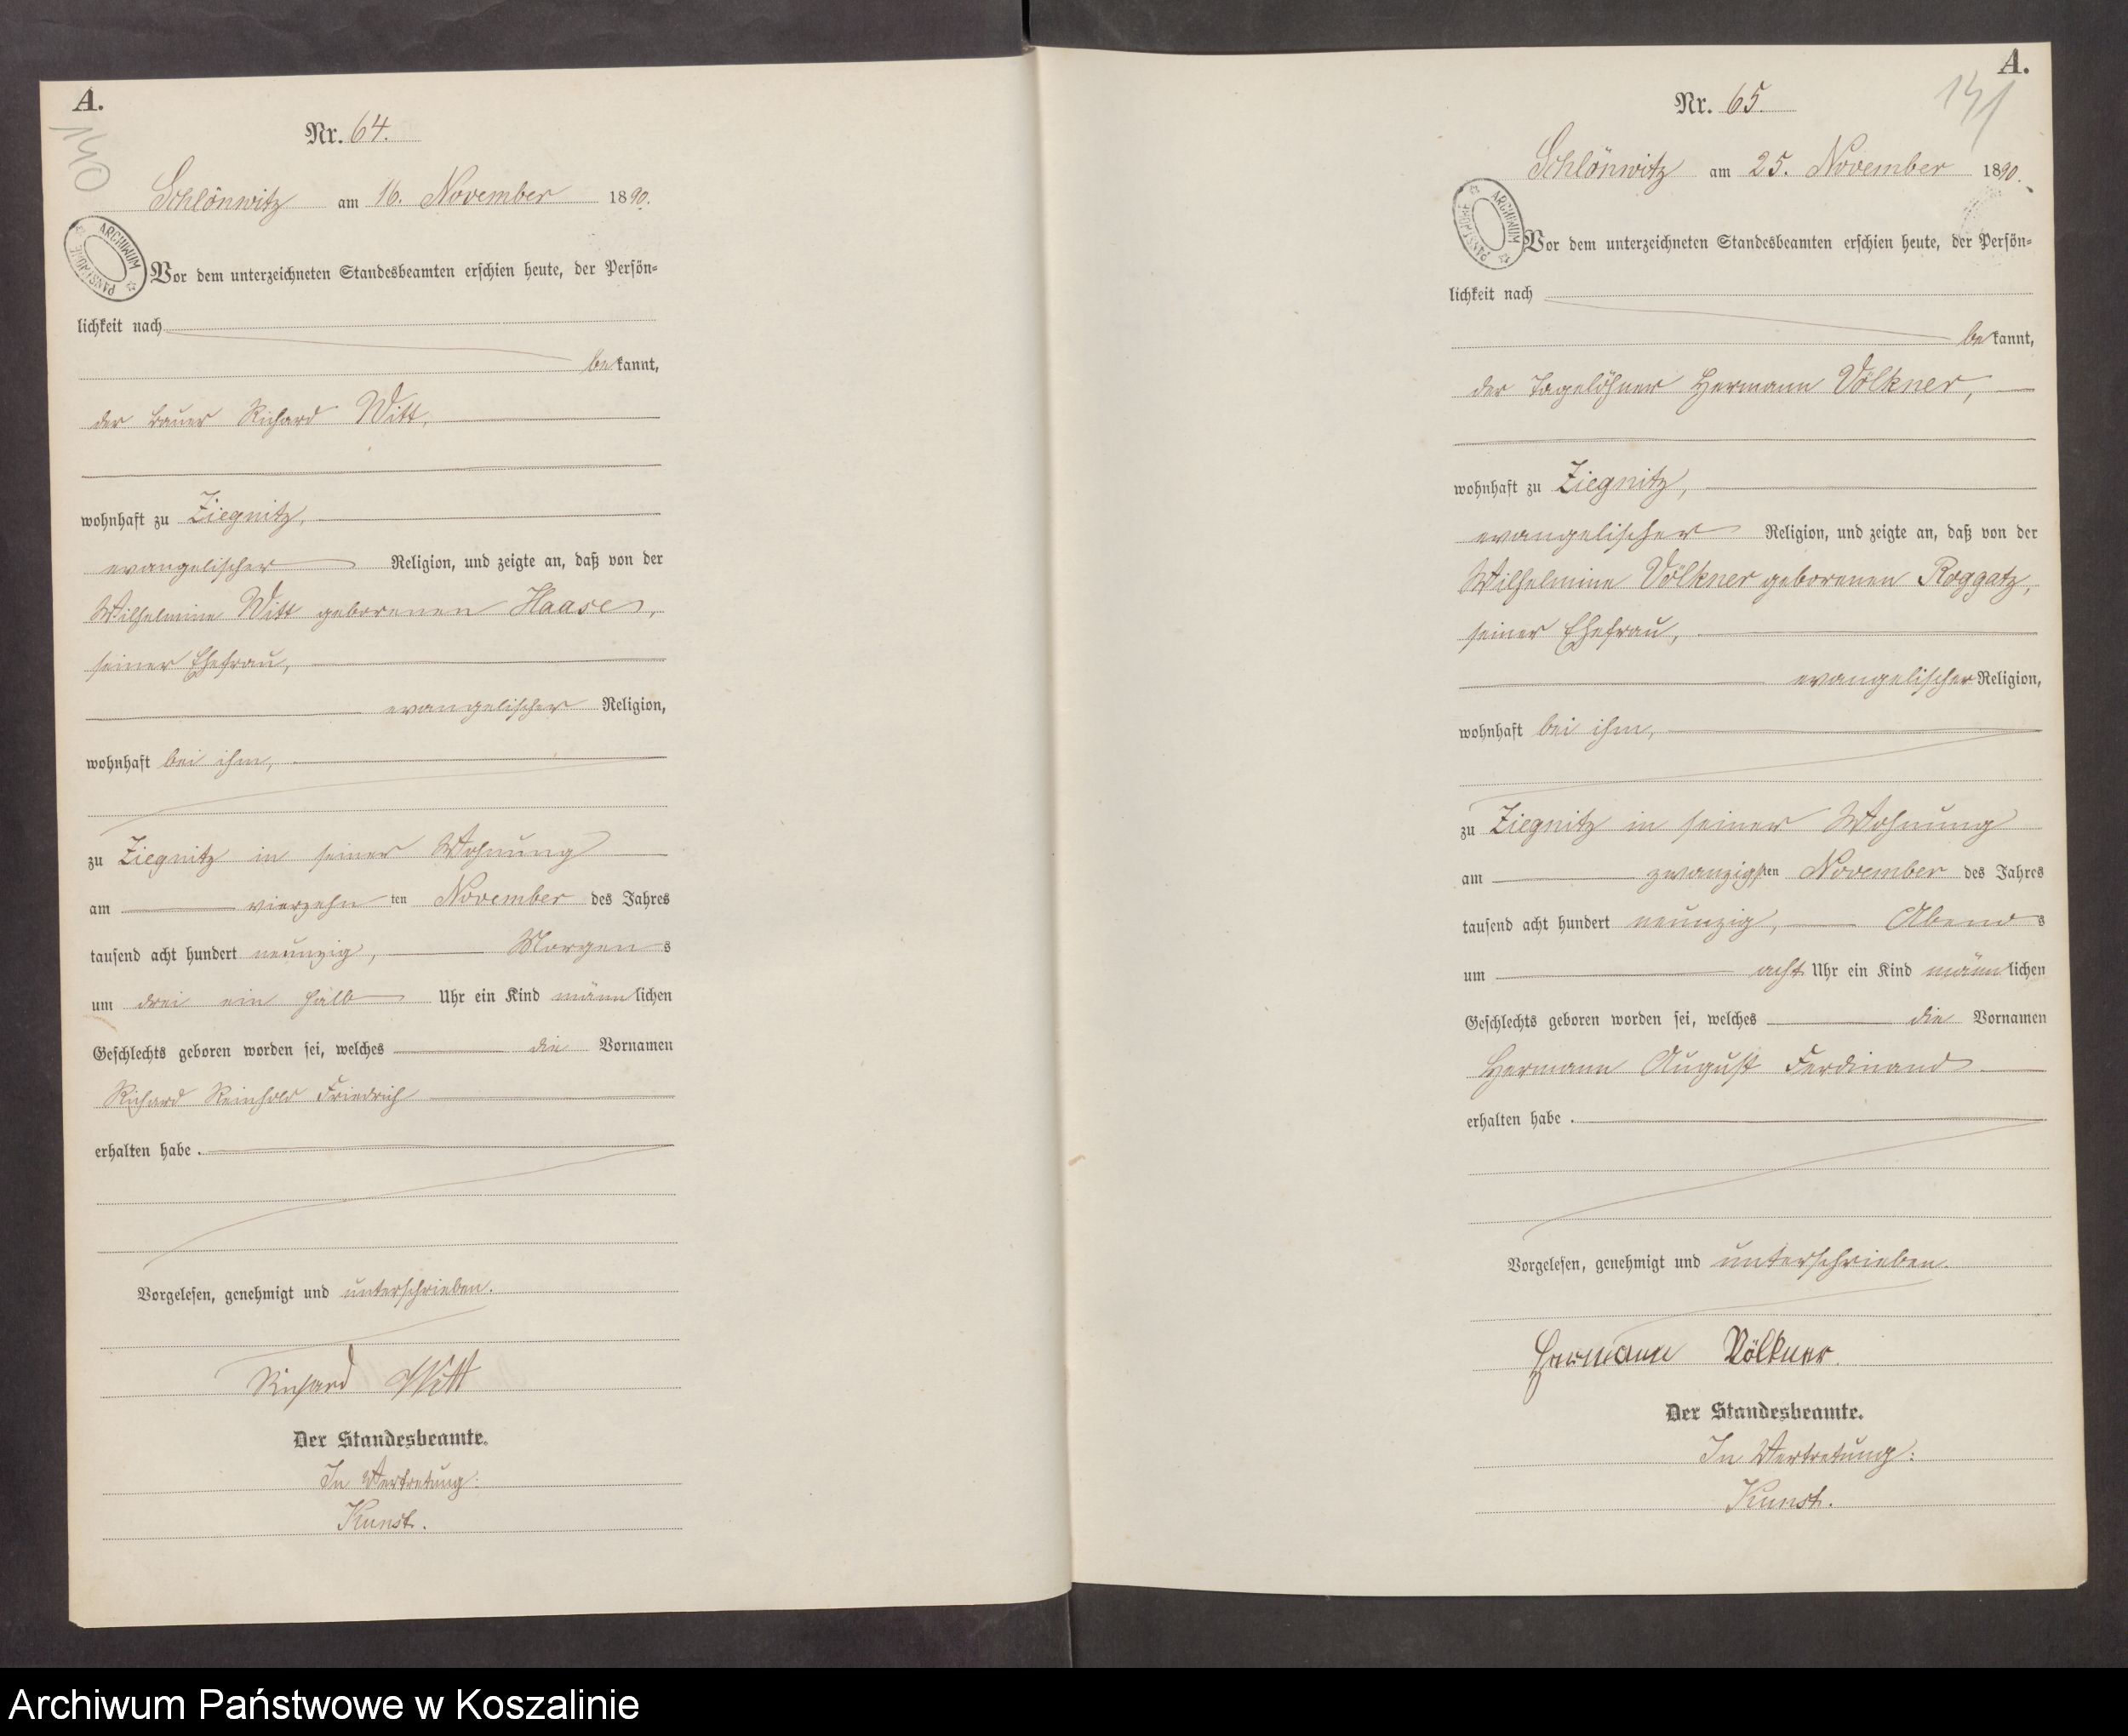 A.
140
Nr. 64.
Schlönwitz am 16. November 1890.
ARCHIWUM PAŃSTWOWE
Vor dem unterzeichneten Standesbeamten erschien heute, der Persön-
lichkeit nach
bekannt,
der Bauer Richard Witt,
wohnhaft zu Ziegnitz,
evangelischer Religion, und zeigte an, daß von der
Wilhelmine Witt geborenen Haase,
seiner Ehefrau,
evangelischer Religion,
wohnhaft bei ihm,
zu Ziegnitz in seiner Wohnung
am vierzehn ten November des Jahres
tausend acht hundert neunzig, Morgens
um drei ein halb Uhr ein Kind männlichen
Geschlechts geboren worden sei, welches die Vornamen
Richard Reinhold Friedrich
erhalten habe.
Vorgelesen, genehmigt und unterschrieben.
Richard Witt
Der Standesbeamte.
In Vertretung:
Kunst.
A.
141
Nr. 65.
Schlönwitz am 25. November 1890.
ARCHIWUM PAŃSTWOWE
Vor dem unterzeichneten Standesbeamten erschien heute, der Persön-
lichkeit nach
bekannt,
der Tagelöhner Hermann Völkner,
wohnhaft zu Ziegnitz,
evangelischer Religion, und zeigte an, daß von der
Wilhelmine Völkner geborenen Roggatz,
seiner Ehefrau,
evangelischer Religion,
wohnhaft bei ihm,
zu Ziegnitz in seiner Wohnung
am zwanzigsten November des Jahres
tausend acht hundert neunzig, Abends
um acht Uhr ein Kind männlichen
Geschlechts geboren worden sei, welches die Vornamen
Hermann August Ferdinand
erhalten habe.
Vorgelesen, genehmigt und unterschrieben.
Hermann Völkner.
Der Standesbeamte.
In Vertretung:
Kunst.
Archiwum Państwowe w Koszalinie